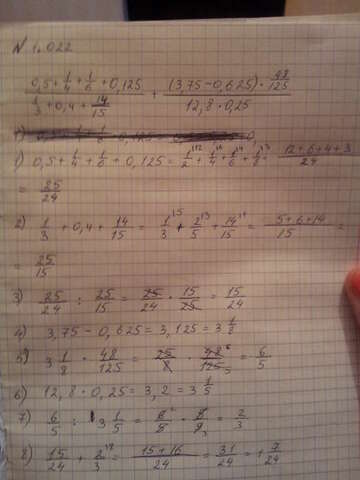 N 1.022
(0,5 + 1/4 + 1/6 + 0,125)/(1/3 + 0,4 + 14/15) + ((3,75 - 0,625) · 48/125)/(12,8 · 0,25)
1) 0,5 + 1/4 + 1/6 + 0,125 = 1/2 + 1/4 + 1/6 + 1/8 = (12+6+4+3)/24
= 25/24
2) 1/3 + 0,4 + 14/15 = 1/3 + 2/5 + 14/15 = (5+6+14)/15 =
= 25/15
3) 25/24 : 25/15 = 25/24 · 15/25 = 15/24
4) 3,75 - 0,625 = 3,125 = 3 1/8
5) 3 1/8 · 48/125 = 25/8 · 48/125 = 6/5
6) 12,8 · 0,25 = 3,2 = 3 1/5
7) 6/5 : 3 1/5 = 6/5 · = 2/3
8) 15/24 + 2/3 = (15+16)/24 = 31/24 = 1 7/24